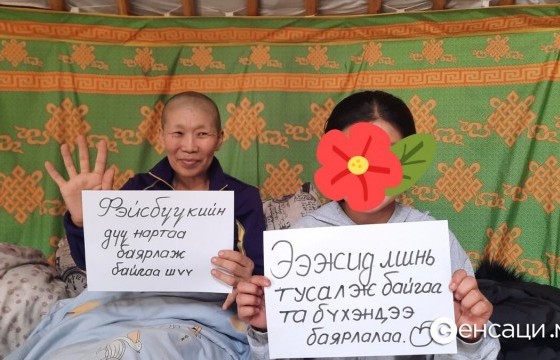 Фэйсбүүкийн
дүү нартаа
баярлаж
байгаа шүү
Ээжид минь
тусалж байгаа
та бүхэндээ
баярлалаа.
сенсаци.